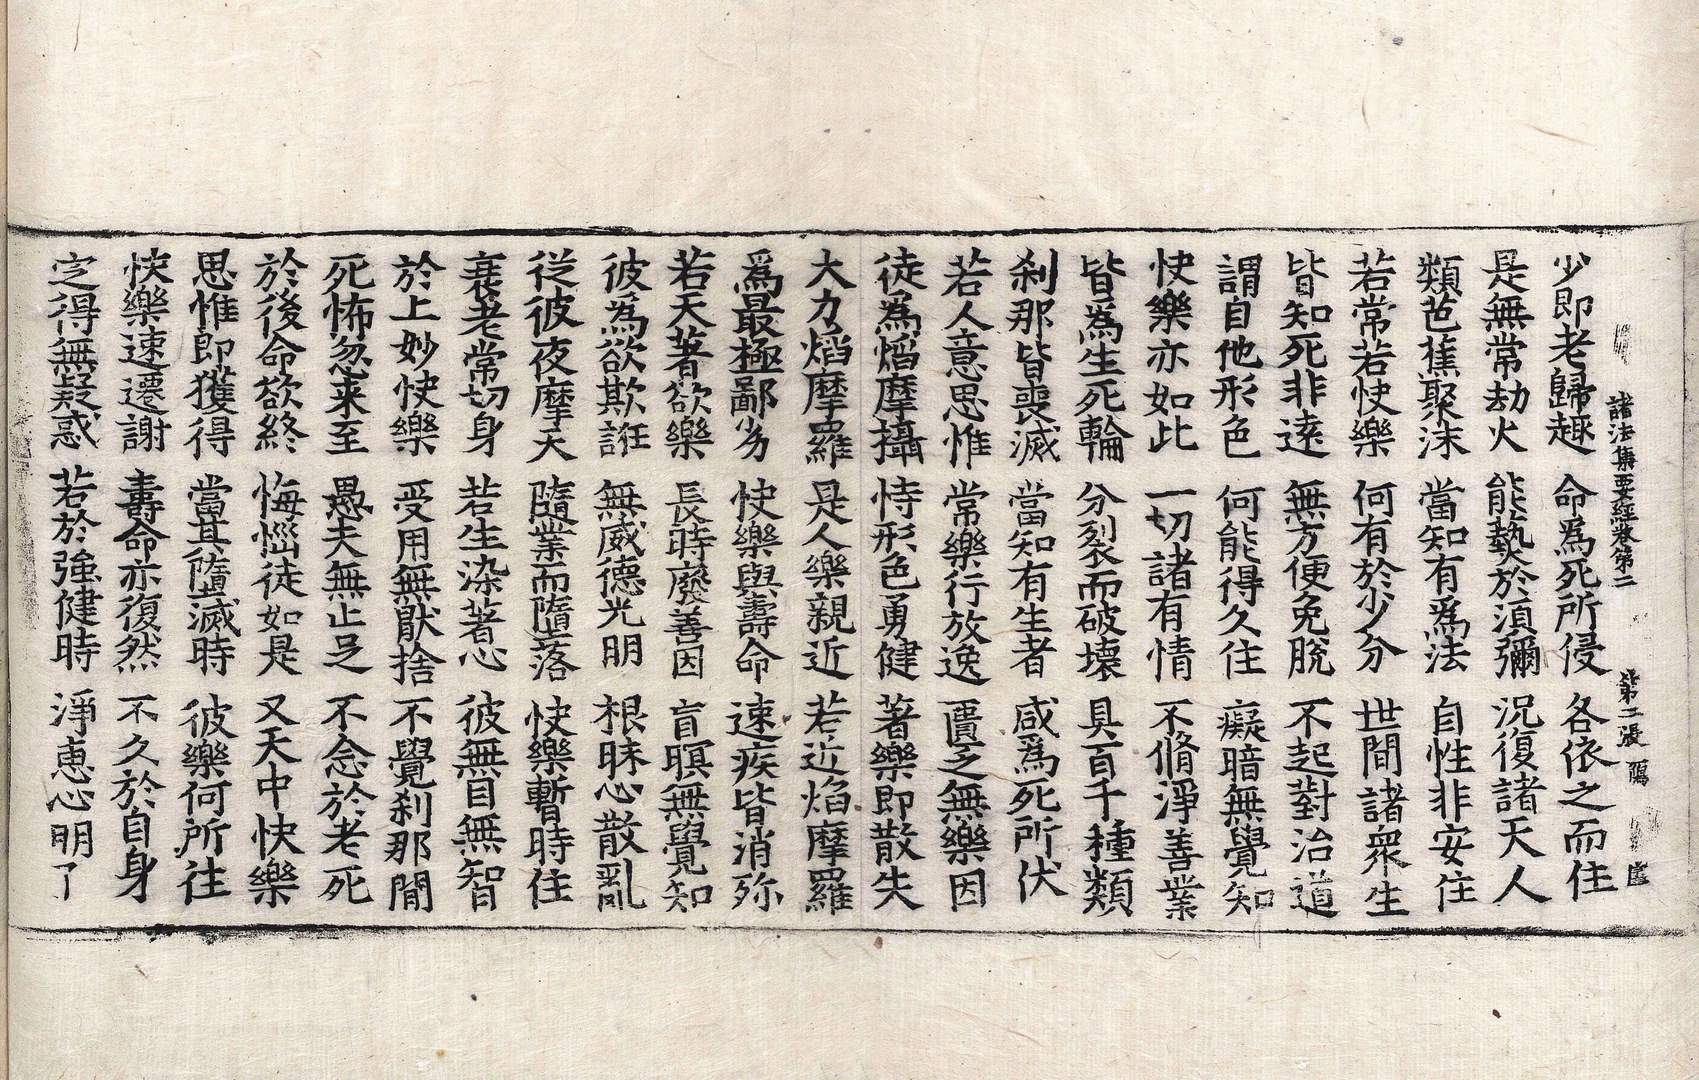 諸法集要經卷第二 第二張
少即老歸趣 命爲死所侵 各依之而住
是無常劫火 能爇於湏彌 況復諸天人
類芭蕉聚沫 當知有爲法 自性非安住
若常若快樂 何有於少分 世間諸衆生
皆知死非遠 無方便免脫 不起對治道
謂自他形色 何能得久住 癡暗無覺知
快樂亦如此 一切諸有情 不脩淨善業
皆爲生死輪 分裂而破壞 具百千種類
刹那皆喪滅 當知有生者 咸爲死所伏
若人意思惟 常樂行放逸 匱乏無樂因
徒爲焰摩攝 恃形色勇健 著樂即散失
大力焰摩羅 是人樂親近 若近焰摩羅
爲最極鄙劣 快樂與壽命 速疾皆消殄
若天著欲樂 長時廢善因 盲瞑無覺知
彼爲欲欺誑 無威德光明 根昧心散亂
從彼夜摩天 隨業而墮落 快樂暫時住
衰老常切身 若生染著心 彼無目無智
於上妙快樂 受用無猒捨 不覺刹那間
死怖忽来至 愚夫無止足 不念於老死
於後命欲終 悔惱徒如是 又天中快樂
思惟即獲得 當其墮滅時 彼樂何所往
快樂速遷謝 壽命亦復然 不久於自身
定得無疑惑 若於強健時 淨恵心明了